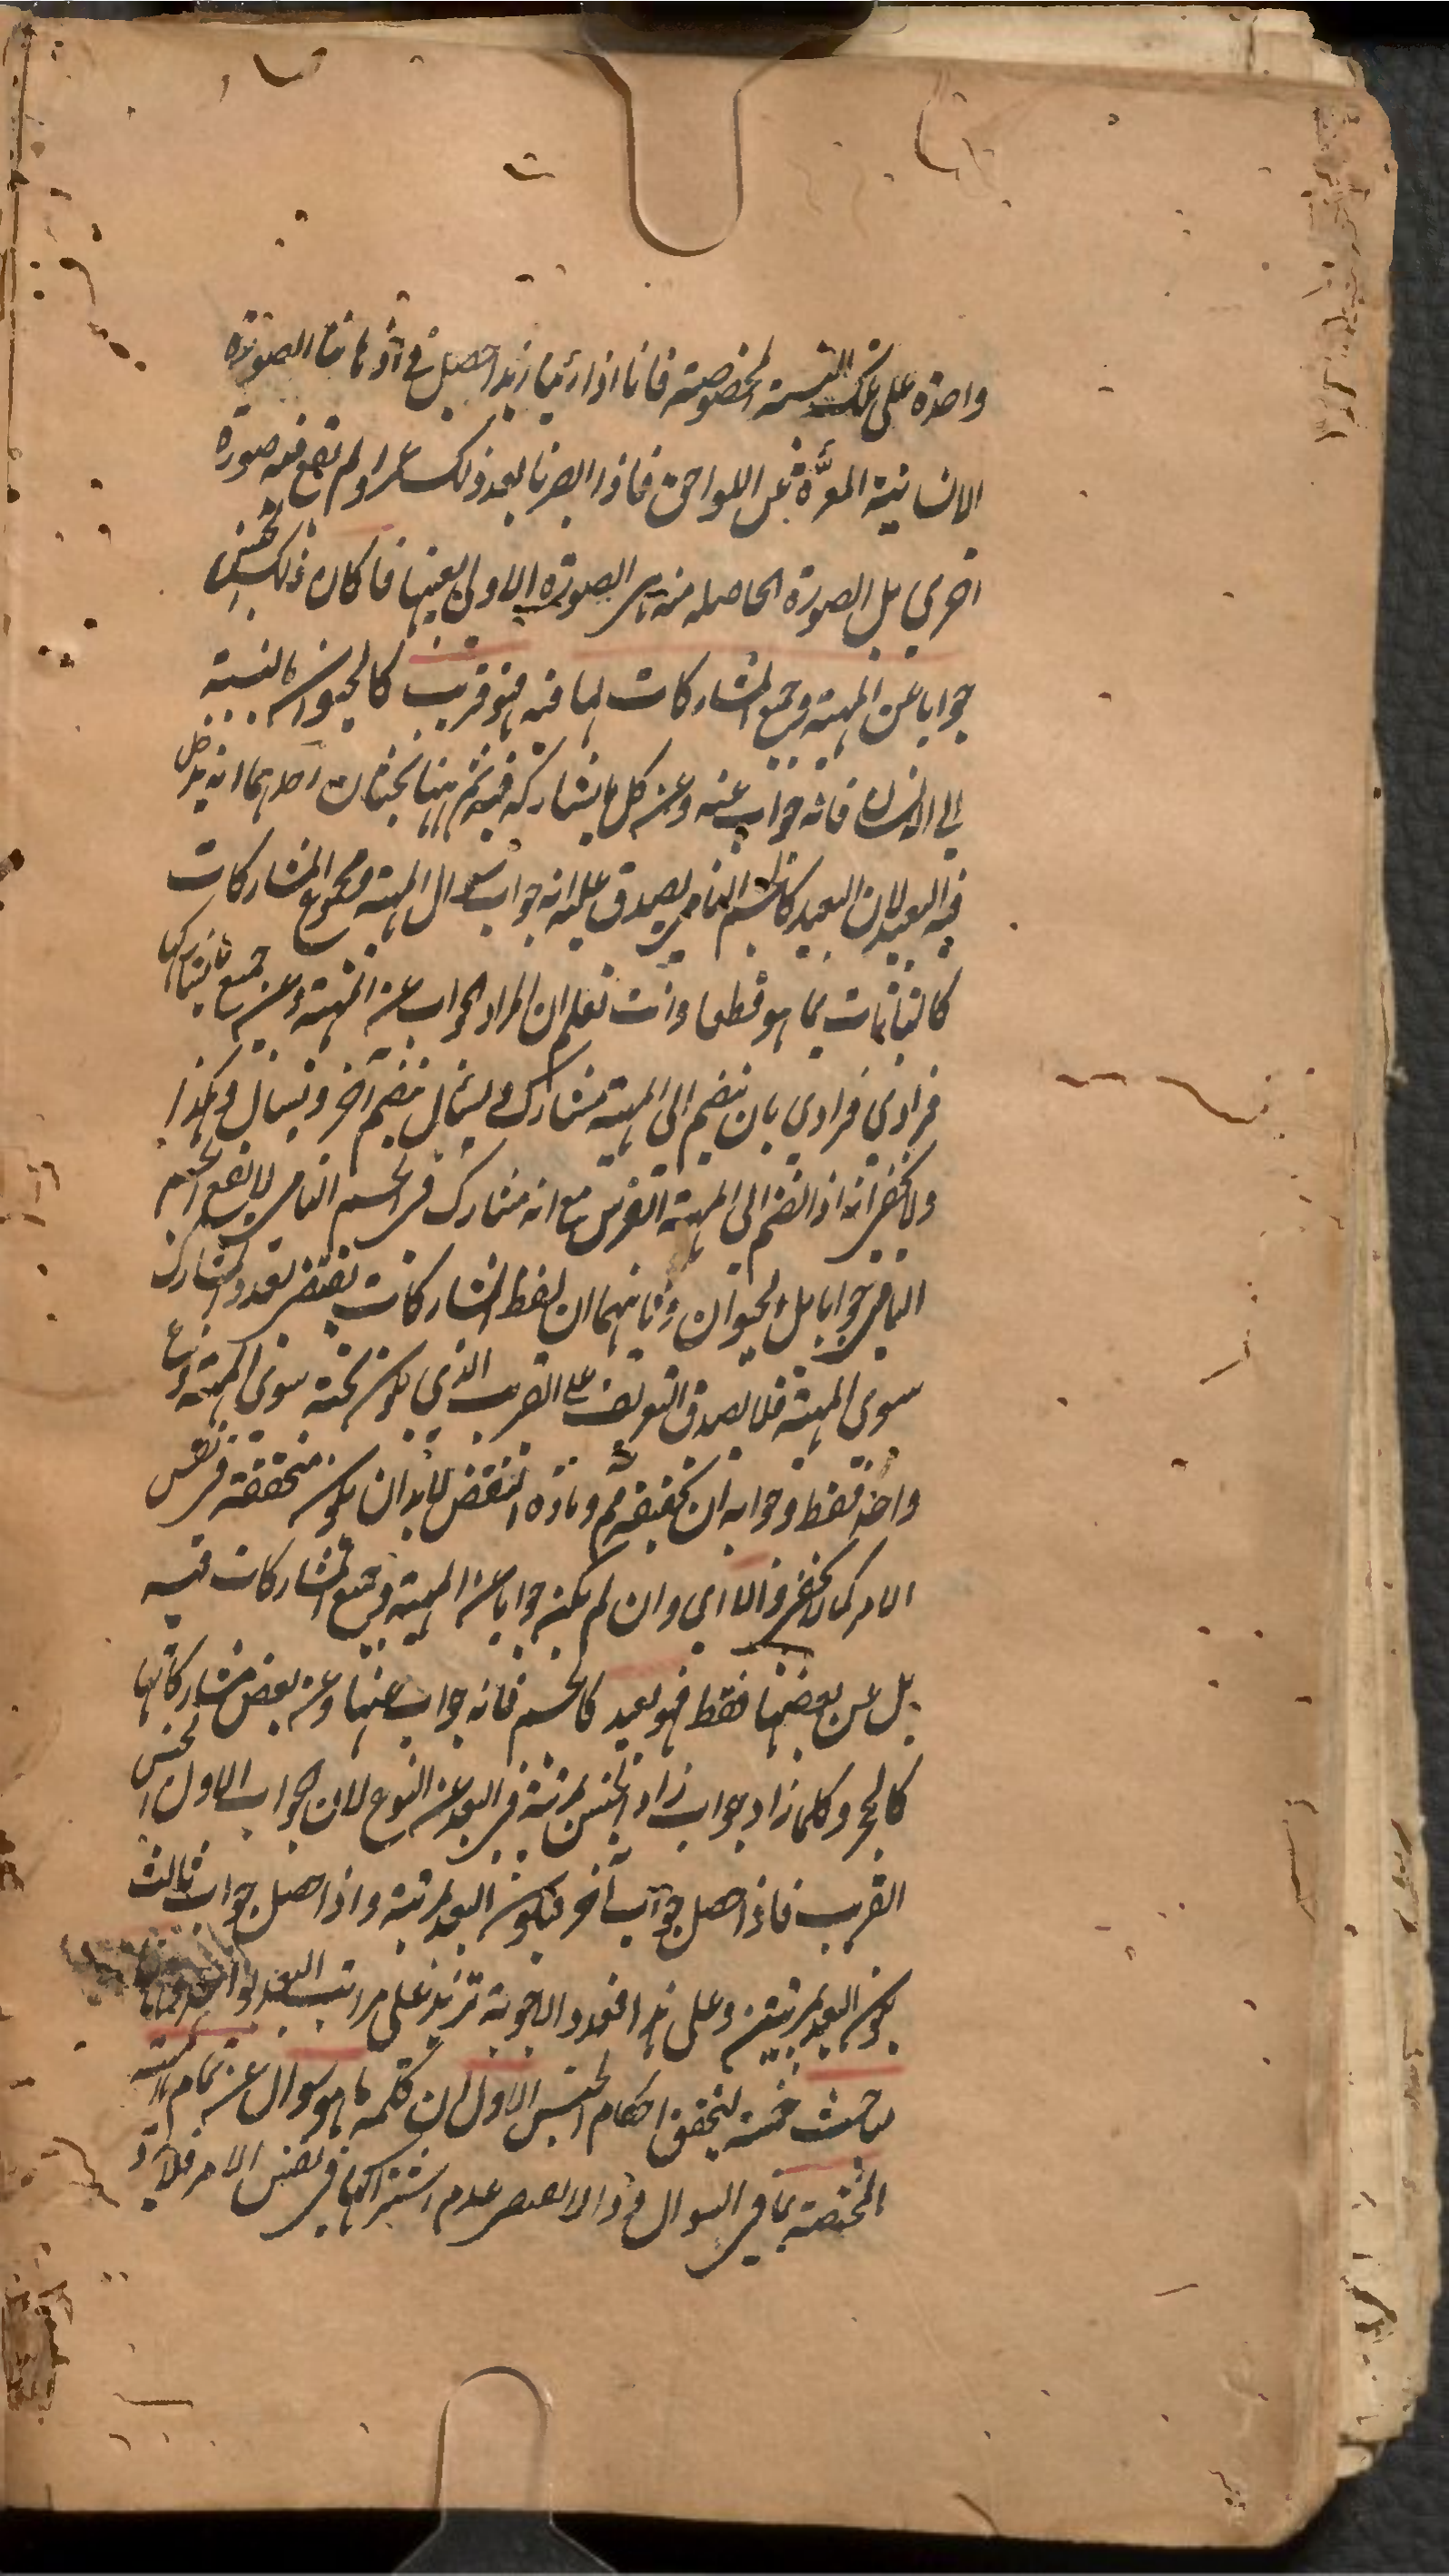 واحدة على تلك النسبة المخصوصة فانا اذا رئينا زيدا حصل في اذهاننا الصورة
الانسانية المعرّاة عن اللواحق فاذا ابصرنا بعد ذلك عمرا ولم تقع فيه صورة
اخرى بل الصورة الحاصله منه هي الصورة الاولى بعينها فا كان ذلك الجنس
جوابا عن المهية وجميع المشاركات لها فيه فهو قريب كالحيوان بالنسبة
الى الانسان فانه جواب عنه وعن كل ما يشاركه فيه ثم ههنا بحثان احدهما انه يدخل
فيه البعيد لان البعيد كالجسم النامي يصدق عليه انه جواب سوال المهية ومجموع المشاركات
كالنباتات بما هو قطعا وانت تعلم ان المراد الجواب عن المهية وعن جميع ما يشاركها
فرادى فرادى بان ينضم الى المهية مشارك ويسئل ثم ينضم آخر ويسال وهكذا
ولا يخفى انه اذا انضم الى المهية الفرس مع انه مشارك في الجسم النامي لا يقع الجسم
النامي جوابا بل الحيوان وثانيهما ان لفظ المشاركات يقتضي تعدد المشارك
سوى المهية فلا يصدق التعريف على القريب الذي يكون تحته سوى المهية نوع
واحد فقط وجوابه ان تحققه مم ومادة النقض لابد ان يكون متحققة في نفس
الامر كما لا يخفى والا اى وان لم يكن جوابا عن المهية وجميع المشاركات فيه
بل عن بعضها فقط فهو بعيد كالجسم فانه جواب عنها وعن بعض مشاركاتها
كالحجر وكلما زاد جواب زاد الجنس مرتبة في البعد عن النوع لان الجواب الاول الجنس
القريب فاذا حصل جواب آخر فيكون البعد بمرتبة واذا حصل جواب ثالث
يكون البعد بمرتبتين وعلى هذا فعدد الاجوبة تزيد على مراتب البعد بواحد
مباحث خمسة لتحقق احكام الجنس الاول ان كلمة ما هو سوال عن تمام المهية
المختصة بما في السوال فرد الا بعد عدم اشتراكها في نفس الامر فلا يرد